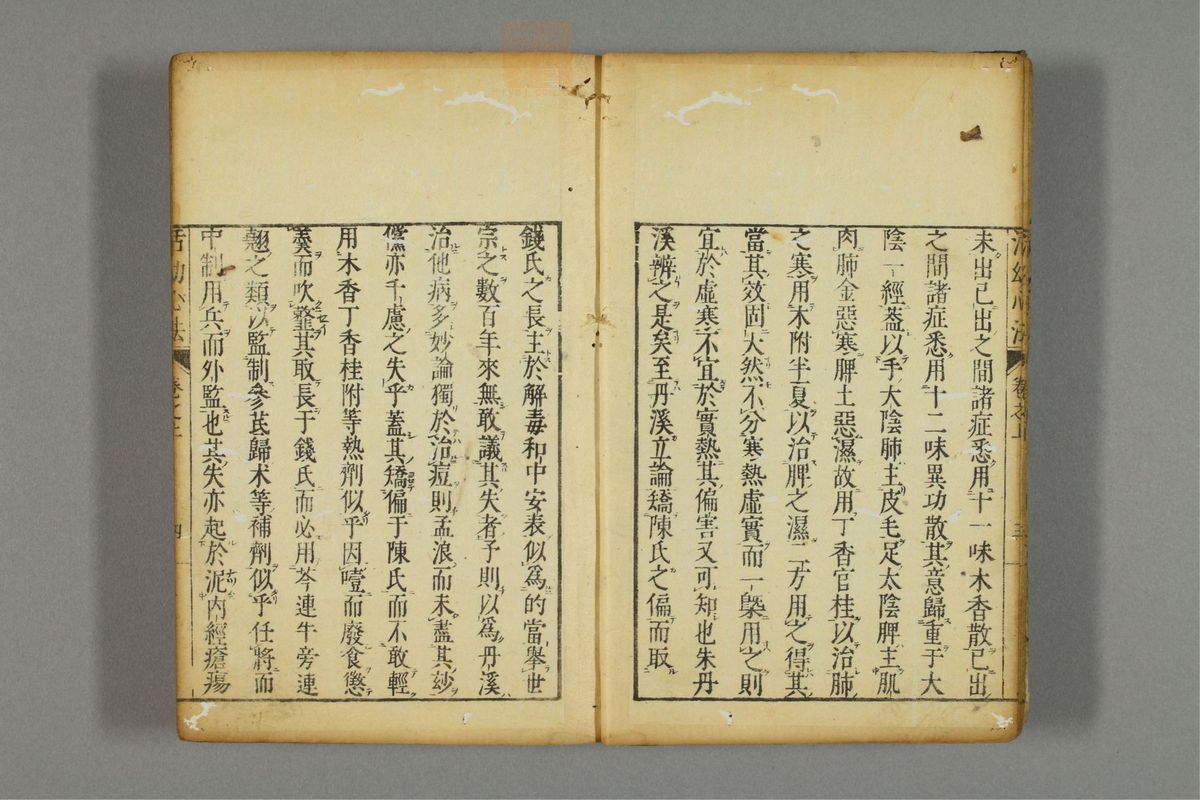 未出已出之間諸症悉用十一味木香散已出
之間諸症悉用十二味異功散其意歸重于大
陰一經葢以手大陰肺主皮毛足太陰脾主肌
肉肺金惡寒脾土惡濕故用丁香官桂以治肺
之寒用木附半夏以治脾之濕二方用之得其
當其效固大然不分寒熱虛實而一槩用之則
宜於虛寒不宜於實熱其偏害又可知也朱丹
溪辨之是矣至丹溪立論矯陳氏之偏而取
錢氏之長主於解毒和中安表似爲的當舉世
宗之數百年來無敢議其失者予則以爲丹溪
治他病多妙論獨於治痘則孟浪而未盡其玅
儻亦千慮之失乎蓋其矯偏于陳氏而不敢輕
用木香丁香桂附等熱劑似乎因噎而廢食懲
羹而吹整其取長于錢氏而必用芩連牛旁連
翹之類以監制參芪歸术等補劑似乎任將而
中制用兵而外監也其失亦起於泥內經瘡瘍
活幼心法 卷之上 三
活幼心法 卷之上 四